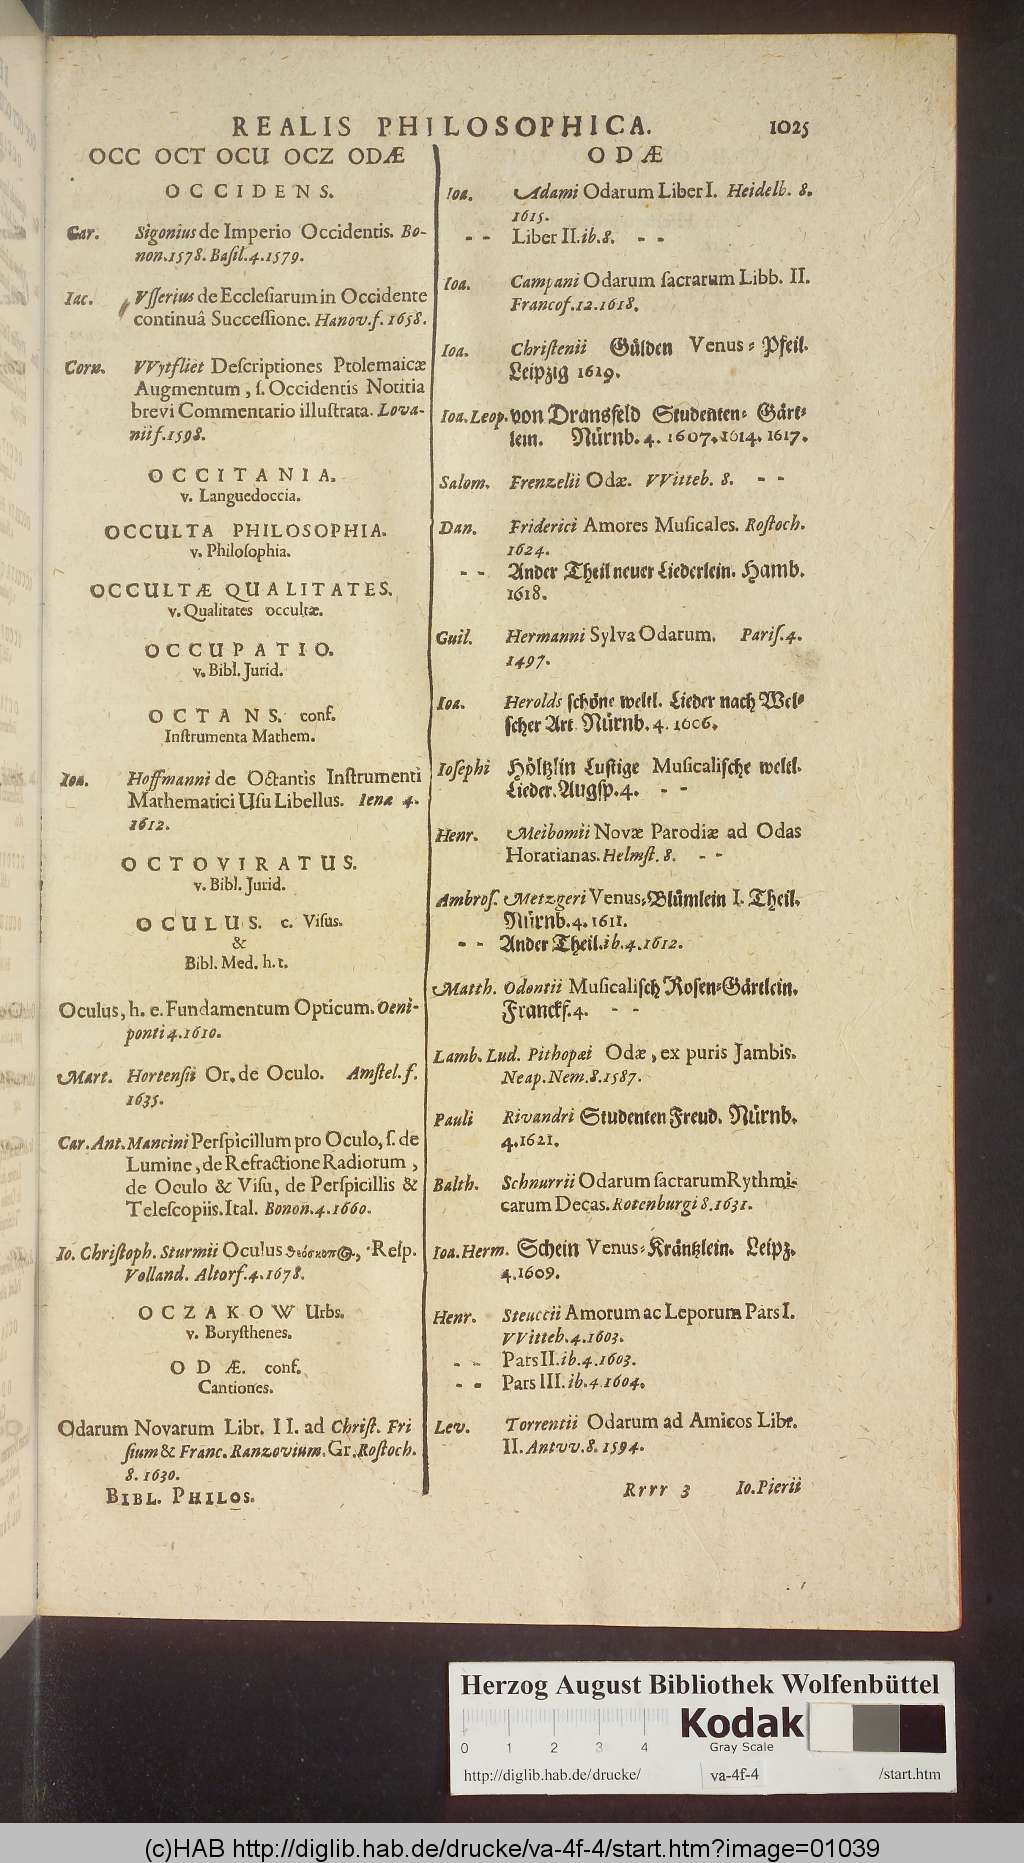 REALIS PHILOSOPHICA. 1025
OCC OCT OCU OCZ ODÆ
OCCIDENS.
Car. Sigonius de Imperio Occidentis. Bo-
non. 1578. Basil. 4. 1579.
Iac. Vsserius de Ecclesiarum in Occidente
continuâ Successione. Hanov. f. 1658.
Corn. VVytfliet Descriptiones Ptolemaicæ
Augmentum, s. Occidentis Notitia
brevi Commentario illustrata. Lova-
nii f. 1598.
OCCITANIA.
v. Languedoccia.
OCCULTA PHILOSOPHIA.
v. Philosophia.
OCCULTÆ QUALITATES.
v. Qualitates occultæ.
OCCUPATIO.
v. Bibl. Jurid.
OCTANS. conf.
Instrumenta Mathem.
Ioa. Hoffmanni de Octantis Instrumenti
Mathematici Usu Libellus. Ienæ 4.
1612.
OCTOVIRATUS.
v. Bibl. Jurid.
OCULUS. c. Visus.
&
Bibl. Med. h. t.
Oculus, h. e. Fundamentum Opticum. Oeni-
ponti 4. 1610.
Mart. Hortensii Or. de Oculo. Amstel. f.
1635.
Car. Ant. Mancini Perspicillum pro Oculo, s. de
Lumine, de Refractione Radiorum,
de Oculo & Visu, de Perspicillis &
Telescopiis. Ital. Bonon. 4. 1660.
Io. Christoph. Sturmii Oculus Resp.
Volland. Altorf. 4. 1678.
OCZAKOW Urbs.
v. Borysthenes.
ODÆ. conf.
Cantiones.
Odarum Novarum Libr. II. ad Christ. Fri
sium & Franc. Ranzovium. Gr. Rostoch.
8. 1630.
BIBL. PHILOS.
ODÆ
Ioa. Adami Odarum Liber I. Heidelb. 8.
1615.
- - Liber II. ib. 8. - -
Ioa. Campani Odarum sacrarum Libb. II.
Francof. 12. 1618.
Ioa. Christenii Gülden Venus-Pfeil.
Leipzig 1619.
Ioa. Leop. von Dransfeld Studenten-Gärt-
lein. Nürnb. 4. 1607. 1614. 1617.
Salom. Frenzelii Odæ. VVitteb. 8. - -
Dan. Friderici Amores Musicales. Rostoch.
1624.
- - Ander Theil neuer Liederlein. Hamb.
1618.
Guil. Hermanni Sylva Odarum. Paris. 4.
1497.
Ioa. Herolds schöne weltl. Lieder nach Wel-
scher Art. Nürnb. 4. 1606.
Iosephi Höltzlin Lustige Musicalische weltl.
Lieder. Augsp. 4. - -
Henr. Meibomii Novæ Parodiæ ad Odas
Horatianas. Helmst. 8. - -
Ambros. Metzgeri Venus-Blümlein I. Theil.
Nürnb. 4. 1611.
- - Ander Theil. ib. 4. 1612.
Matth. Odontii Musicalisch Rosen-Gärtlein.
Franckf. 4. - -
Lamb. Lud. Pithopæi Odæ, ex puris Jambis.
Neap. Nem. 8. 1587.
Pauli Rivandri Studenten Freud. Nürnb.
4. 1621.
Balth. Schnurrii Odarum sacrarum Rythmi-
carum Decas. Rotenburgi 8. 1631.
Ioa. Herm. Schein Venus-Kräntzlein. Leipz.
4. 1609.
Henr. Steuccii Amorum ac Leporum Pars I.
VVitteb. 4. 1603.
- - Pars II. ib. 4. 1603.
- - Pars III. ib. 4. 1604.
Lev. Torrentii Odarum ad Amicos Libr.
II. Antvv. 8. 1594.
Rrrr 3 Io. Pierii
Herzog August Bibliothek Wolfenbüttel
0 1 2 3 4
Kodak
Gray Scale
http://diglib.hab.de/drucke/ va-4f-4 /start.htm
(c)HAB http://diglib.hab.de/drucke/va-4f-4/start.htm?image=01039